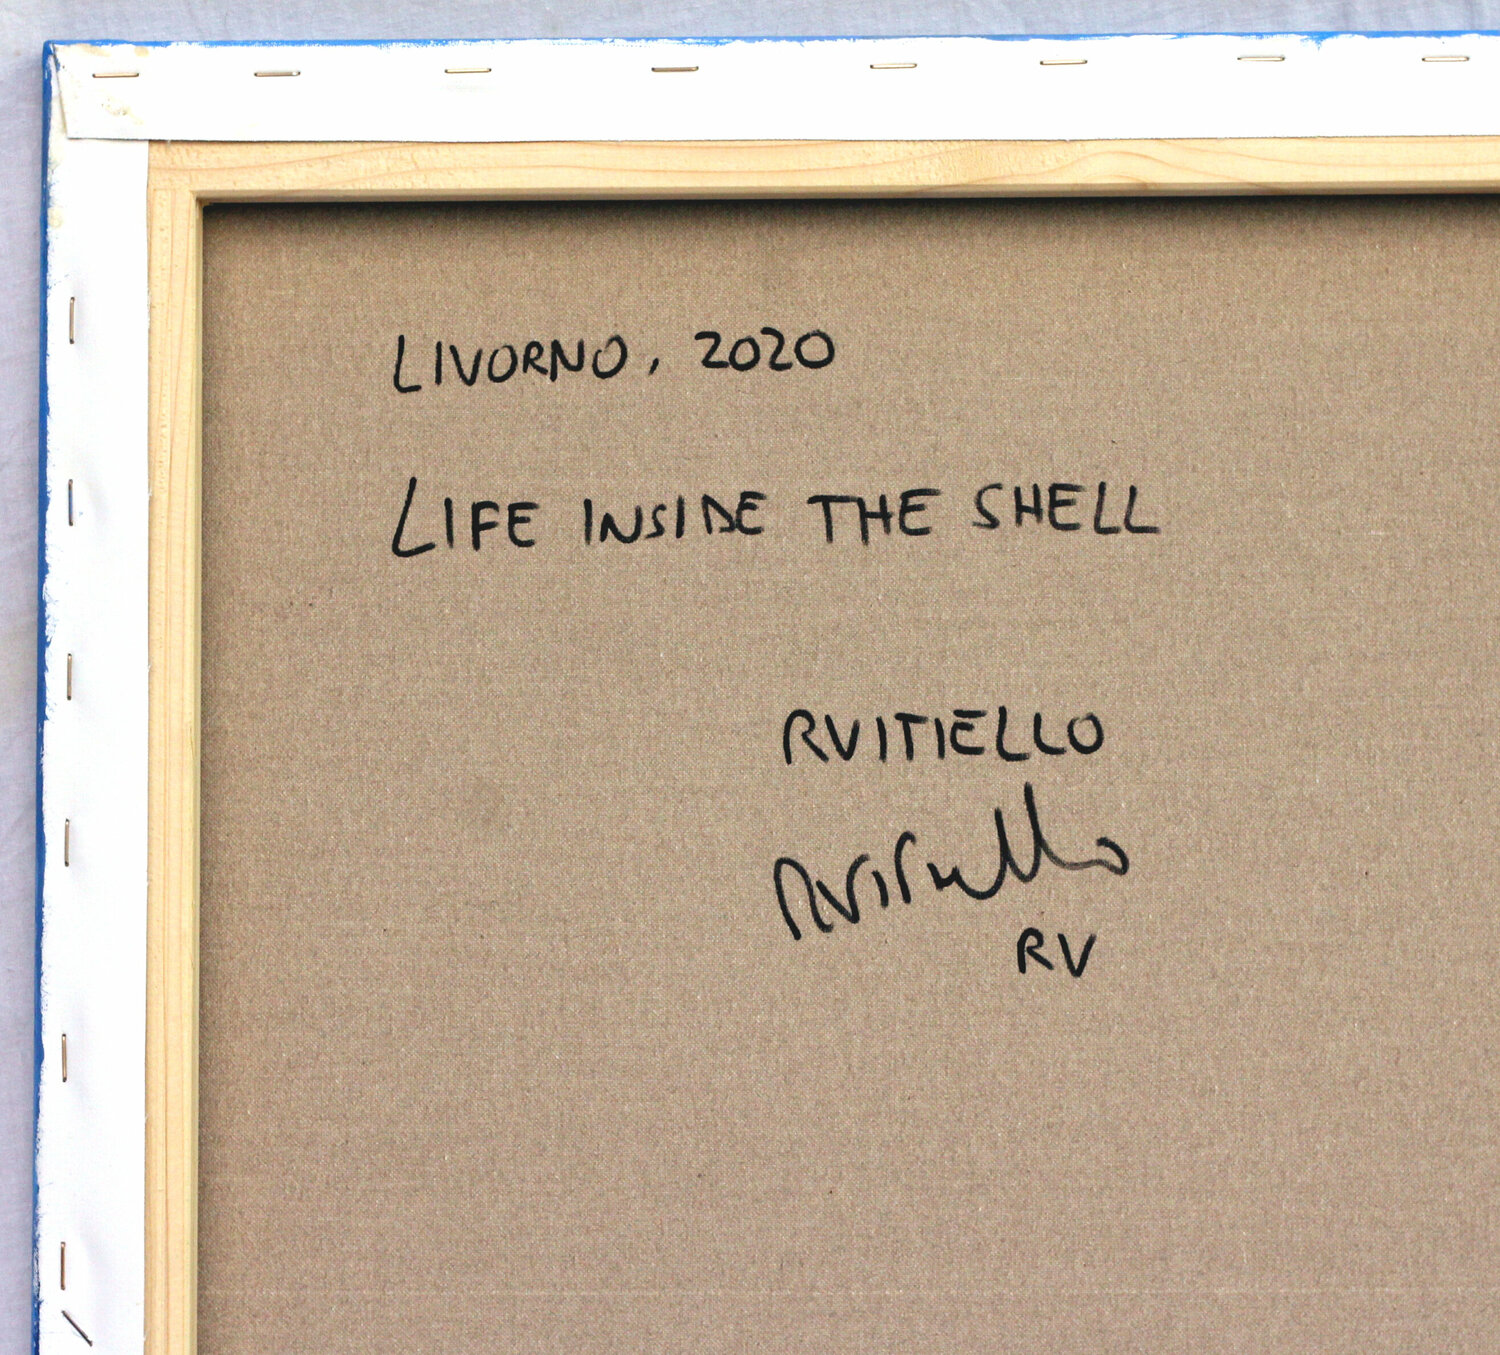 LIVORNO, 2020
LIFE INSIDE THE SHELL
RVITIELLO
RVitiello
RV